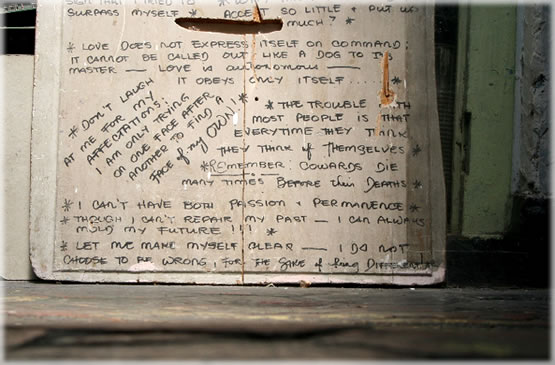 SIGN THAT I TRIED TO * 
SURPASS MYSELF * ACCEPT SO LITTLE + PUT
MUCH? *
* LOVE DOES NOT EXPRESS ITSELF ON COMMAND;
IT CANNOT BE CALLED OUT LIKE A DOG TO ITS
MASTER — LOVE IS AUTONOMOUS —
IT OBEYS ONLY ITSELF... *
* DON'T LAUGH
AT ME FOR MY
AFFECTATIONS;
I AM ONLY TRYING
ON ONE FACE AFTER
ANOTHER TO FIND A
FACE of my OWN!! *
* THE TROUBLE WITH
MOST PEOPLE IS THAT
EVERYTIME THEY THINK
THEY THINK OF THEMSELVES *
* REMEMBER: COWARDS DIE
MANY TIMES BEFORE their DEATHS *
* I CAN'T HAVE BOTH PASSION + PERMANENCE *
* THOUGH I CAN'T REPAIR MY PAST — I CAN ALWAYS
MOLD MY FUTURE !!! *
* LET ME MAKE MYSELF CLEAR — I DO NOT
CHOOSE TO BE WRONG, FOR THE SAKE of being DIFFERENT